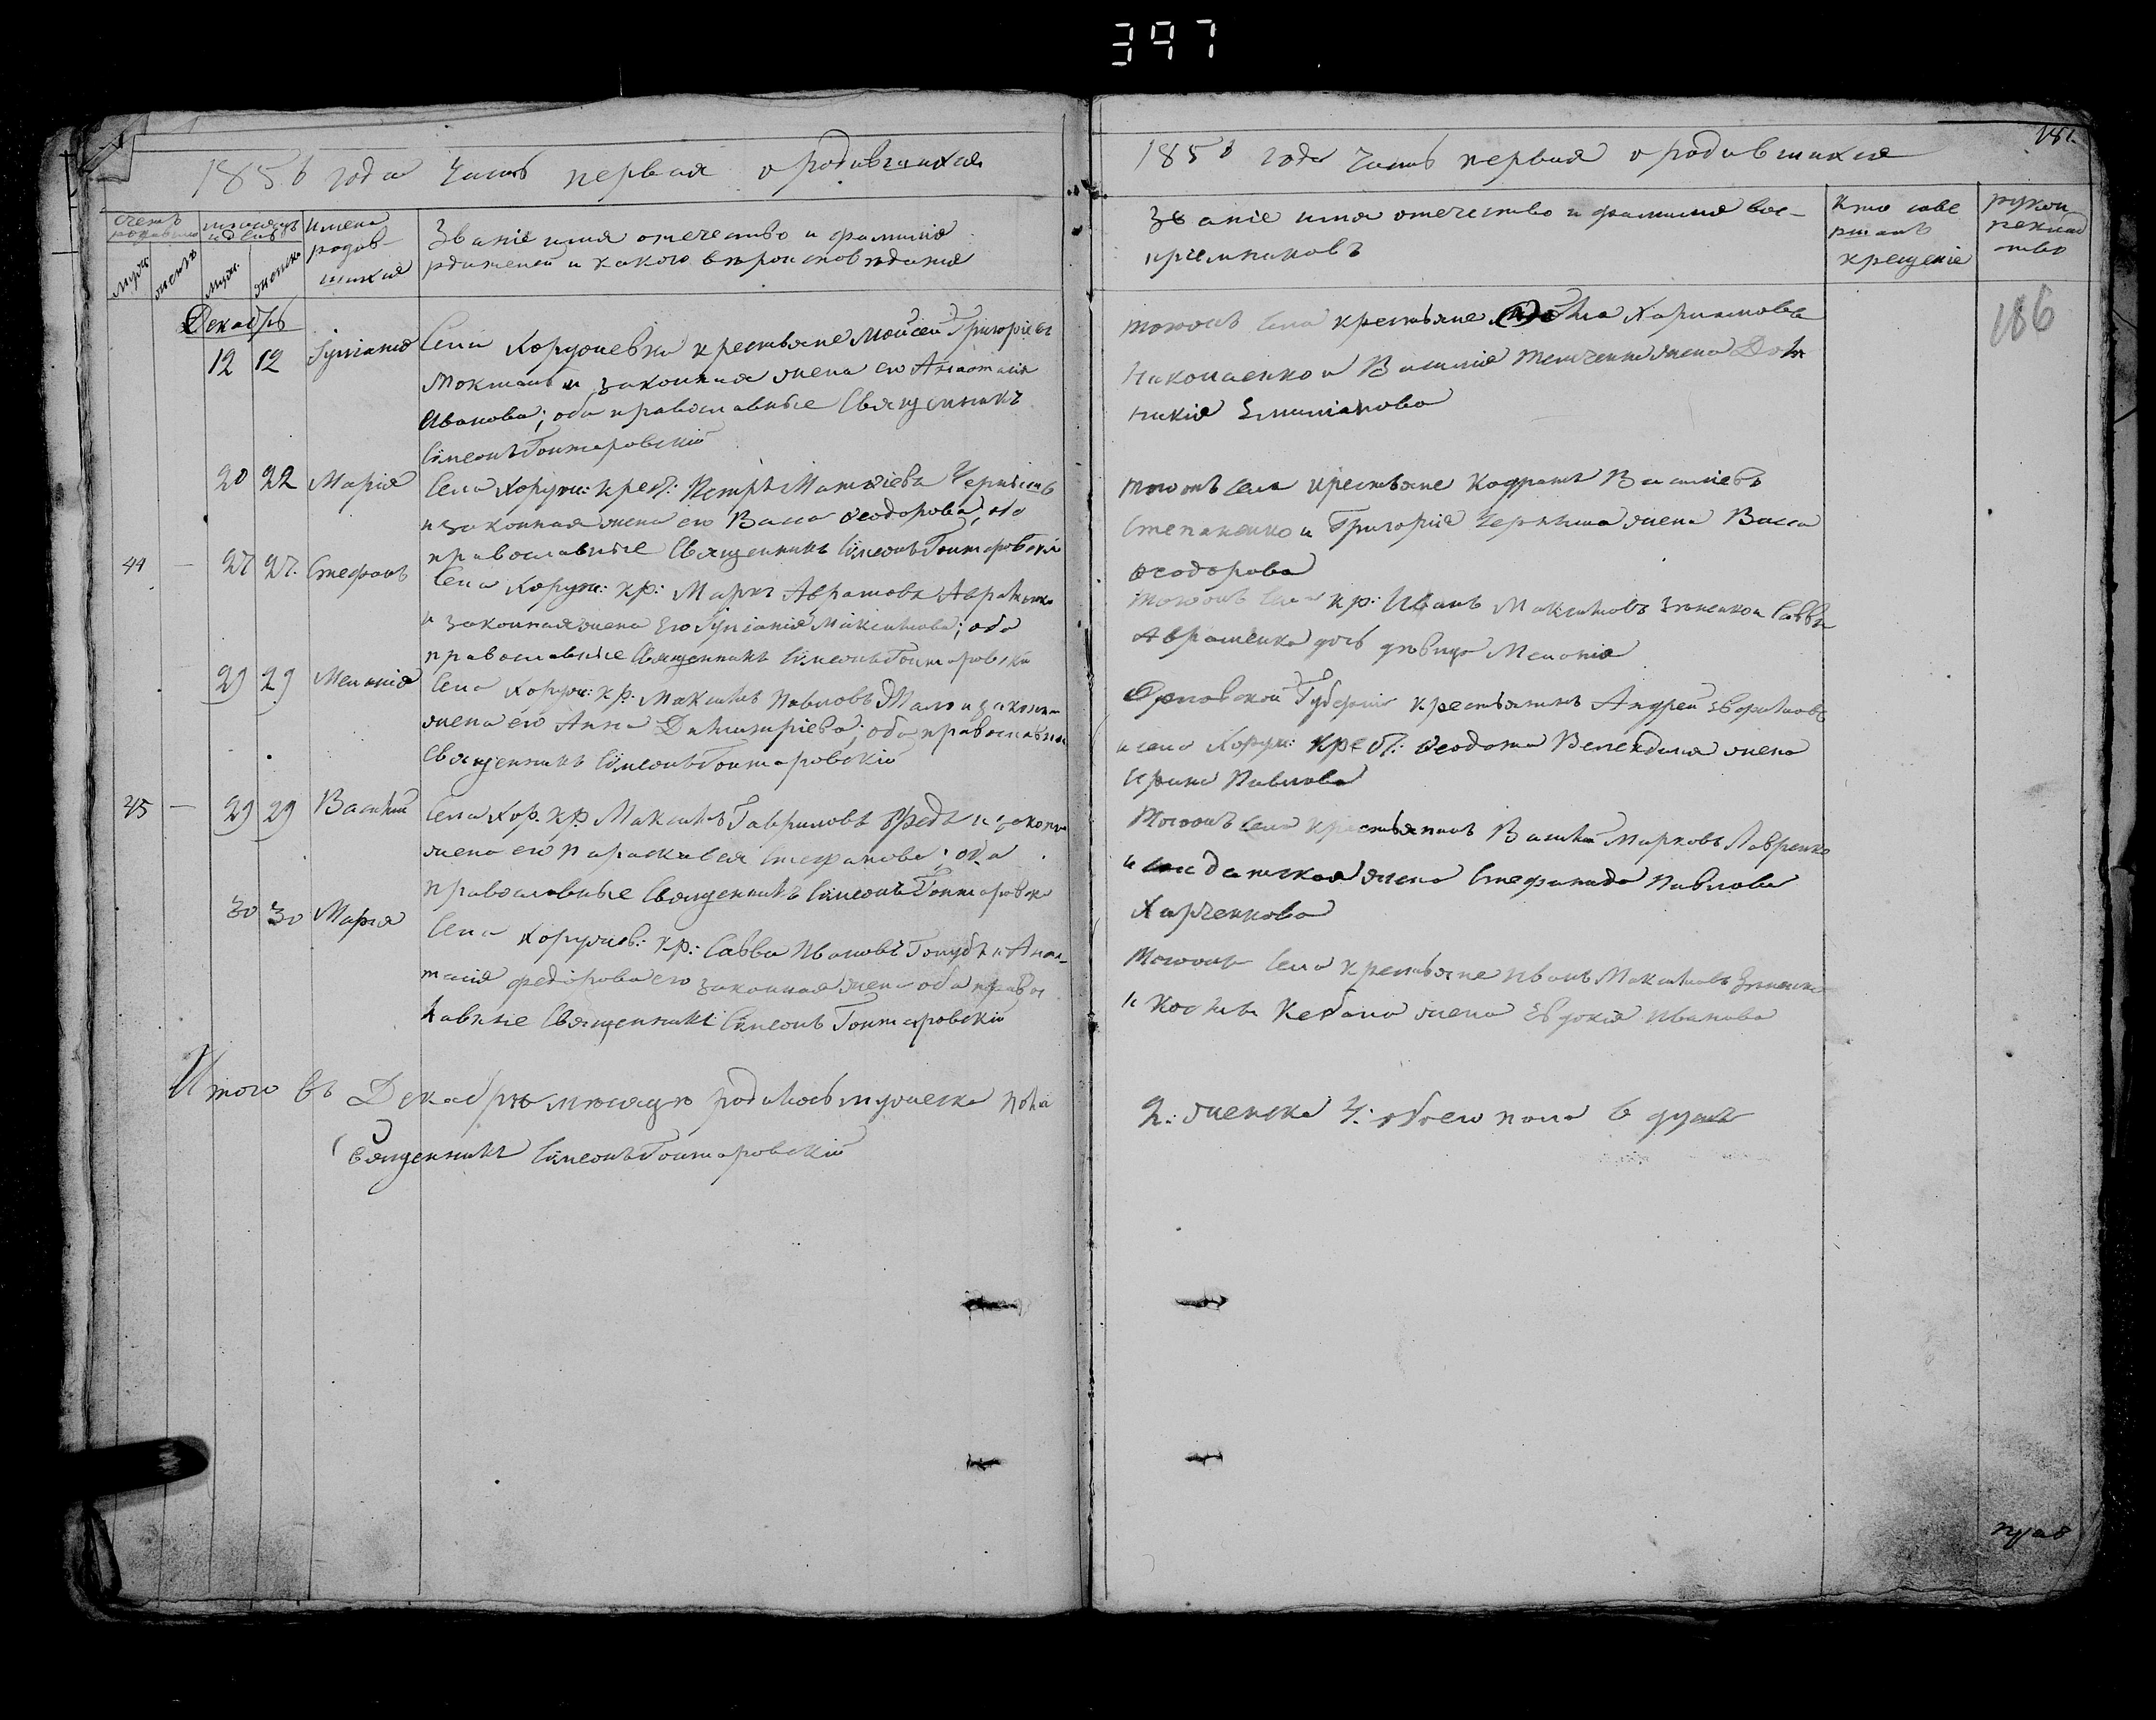 397
1856 года Часть первая о родившихся
счетъ родившихся
мужъ
женскъ
месяцъ и день
муж.
женска
имена родив-
шихся
Званіе имя отечество и фамилія
рдителей и какого вѣроисповѣданія
Декабрь
12 12 Іуліанія Села Коружиевки крестьяне Моисей Григоріевъ
и законная жена его Анастасія
Иванова; оба православные Священникъ
Симеонъ Гонтаровскій
20 22 Марія Села Коруж: крест: Петръ Матвіевъ Чернышъ
и законная жена его Васса Феодорова; оба
православные Священникъ Симеонъ Гонтаровскій
44 — 27 27. Стефанъ Села Коруж: кр: Марко Аврамовъ Авраменко
и законная жена его Іуліанія Максимова; оба
православные Священникъ Симеонъ Гонтаровскій
29 29 Меланія Села Коруж: кр. Максимъ Павловъ и законная
жена его Анна Димитріева; оба православные
Священникъ Симеонъ Гонтаровскій
45 — 29 29 Василій Села Кор. кр. Максимъ Гавриловъ и законная
жена его Параскевия Стефанова; оба
православные Священникъ Симеонъ Гонтаровскій
30 30 Марія Села Коружиев: кр: Савва Ивановъ Голубъ и Анас-
тасія федорова его законная жена оба правос
лавные Священникъ Симеонъ Гонтаровскій
Итого въ Декабрѣ мѣсяцѣ родилось мужеска пола
Священникъ Симеонъ Гонтаровскій
181.
1856 года Часть первая о родившихся
Званіе имя отечество и фамилія вос-
пріемниковъ
Кто сове
ршалъ
крещеніе
рукоп
рекла
тво
186
тогожъ села крестьяне Харламова
Николаенко и Василія жена Дом
никія Емиліанова
тогожъ села крестьяне Кодратъ Василіевъ
Степаненко и Григорія Черныша жена Васса
Феодорова
тогожъ села кр: Иванъ Максимовъ Зѣненко и Саввы
Авраменка дочь дѣвица Меланія
Орловской Губерніи крестьянинъ Андрей
и села Коруж: крест: Феодота жена
Ирина Павлова
Тогожъ села крестьянинъ Василій Марковъ Лавренко
и солдатская жена Стефанида Павлова
Харченкова
Тогожъ села крестьяне Иванъ Максимовъ Зѣненко
и Косьмы жена Евдокія Иванова
2: женска 4: обоего пола 6 душъ